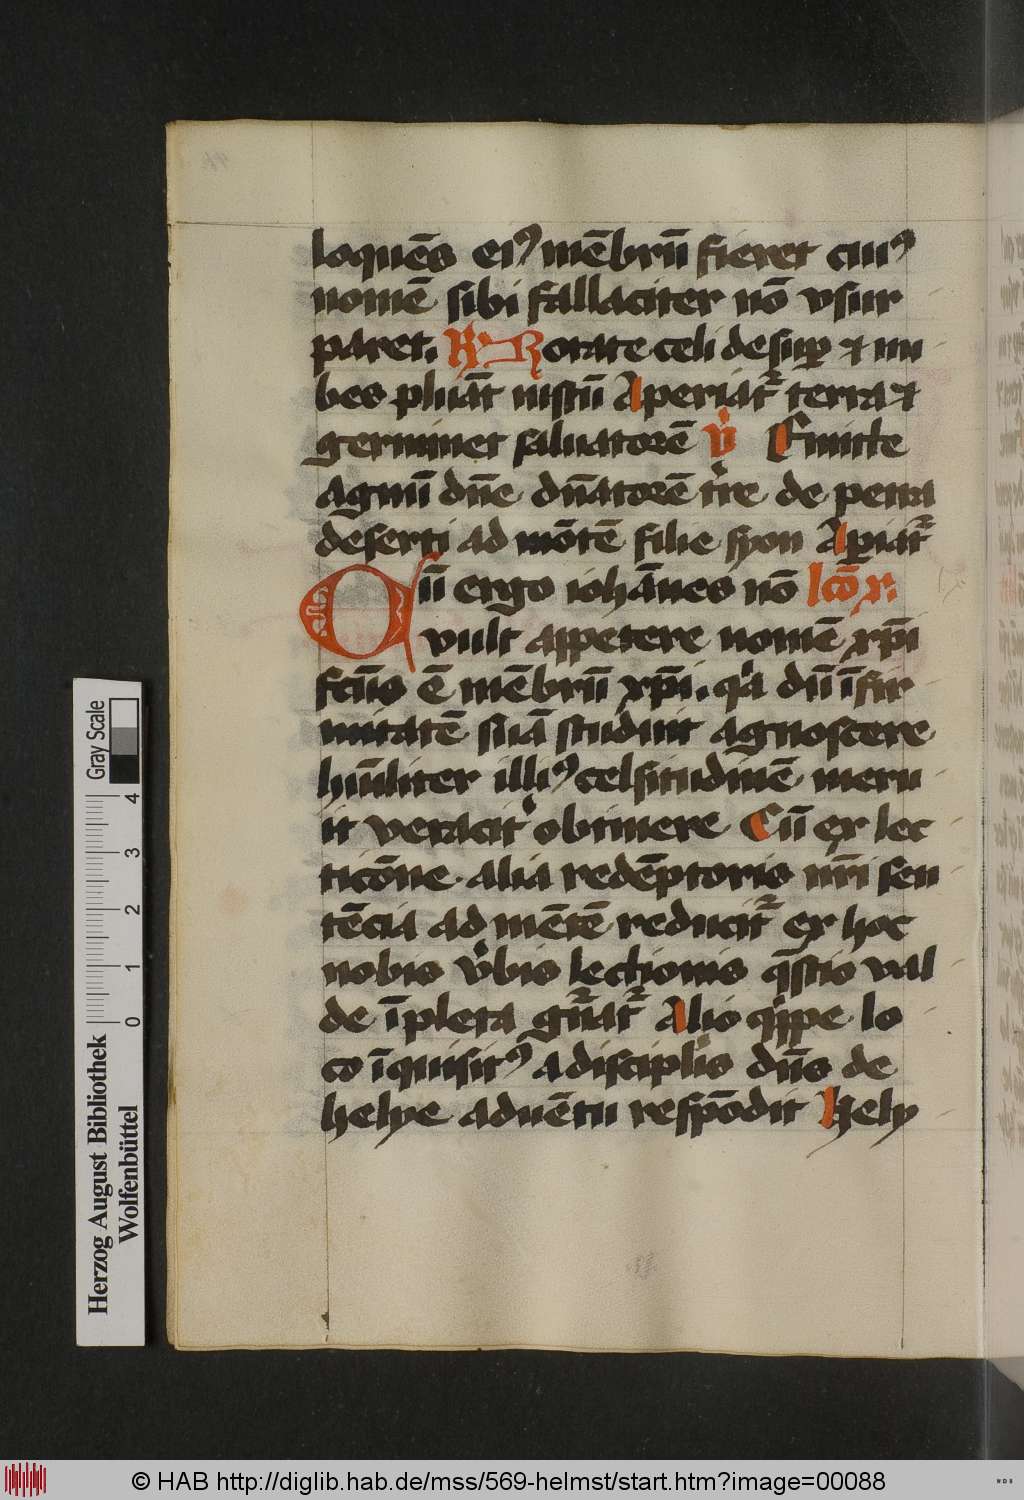 loquēs eiꝰ mēbrū fieret cuiꝰ
nomē sibi fallaciter nō vsur
paret. R Rorate celi desuꝑ et nu
bes pluāt iustū Aperiat᷑ terra et
germinet saluatorē v̄ Emitte
agnū dn̄e dn̄atorē tr̄e de petra
deserti ad mōtē filie syon Aꝑiat᷑
Cū ergo iohānes nō lcō x.
vult appetere nomē xp̄i
fcūs ē mēbrū xp̄i. qa dū īfir
mitatē suā studuit agnoscere
hūiliter illiꝰ celsitudinē meru
it veracit obtinere Cū ex lec
ticōne alia redēptoris nr̄i sen
tēcia ad mētē reducit᷑ ex hoc
nobis v̄bis lectionis q̄stio val
de īpleta gn̄at᷑ Alio qippe lo
co īquisitꝰ a discipulis dn̄s de
helye aduētu respōdit Hely
Gray Scale
4
3
2
1
0
Herzog August Bibliothek
Wolfenbüttel
© HAB http://diglib.hab.de/mss/569-helmst/start.htm?image=00088